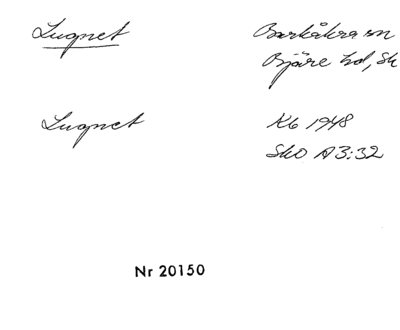 Lugnet Barkåkra sn
Bjäre hd, Sk
Lugnet Kb 1948
SkO A3:32
Nr 20150